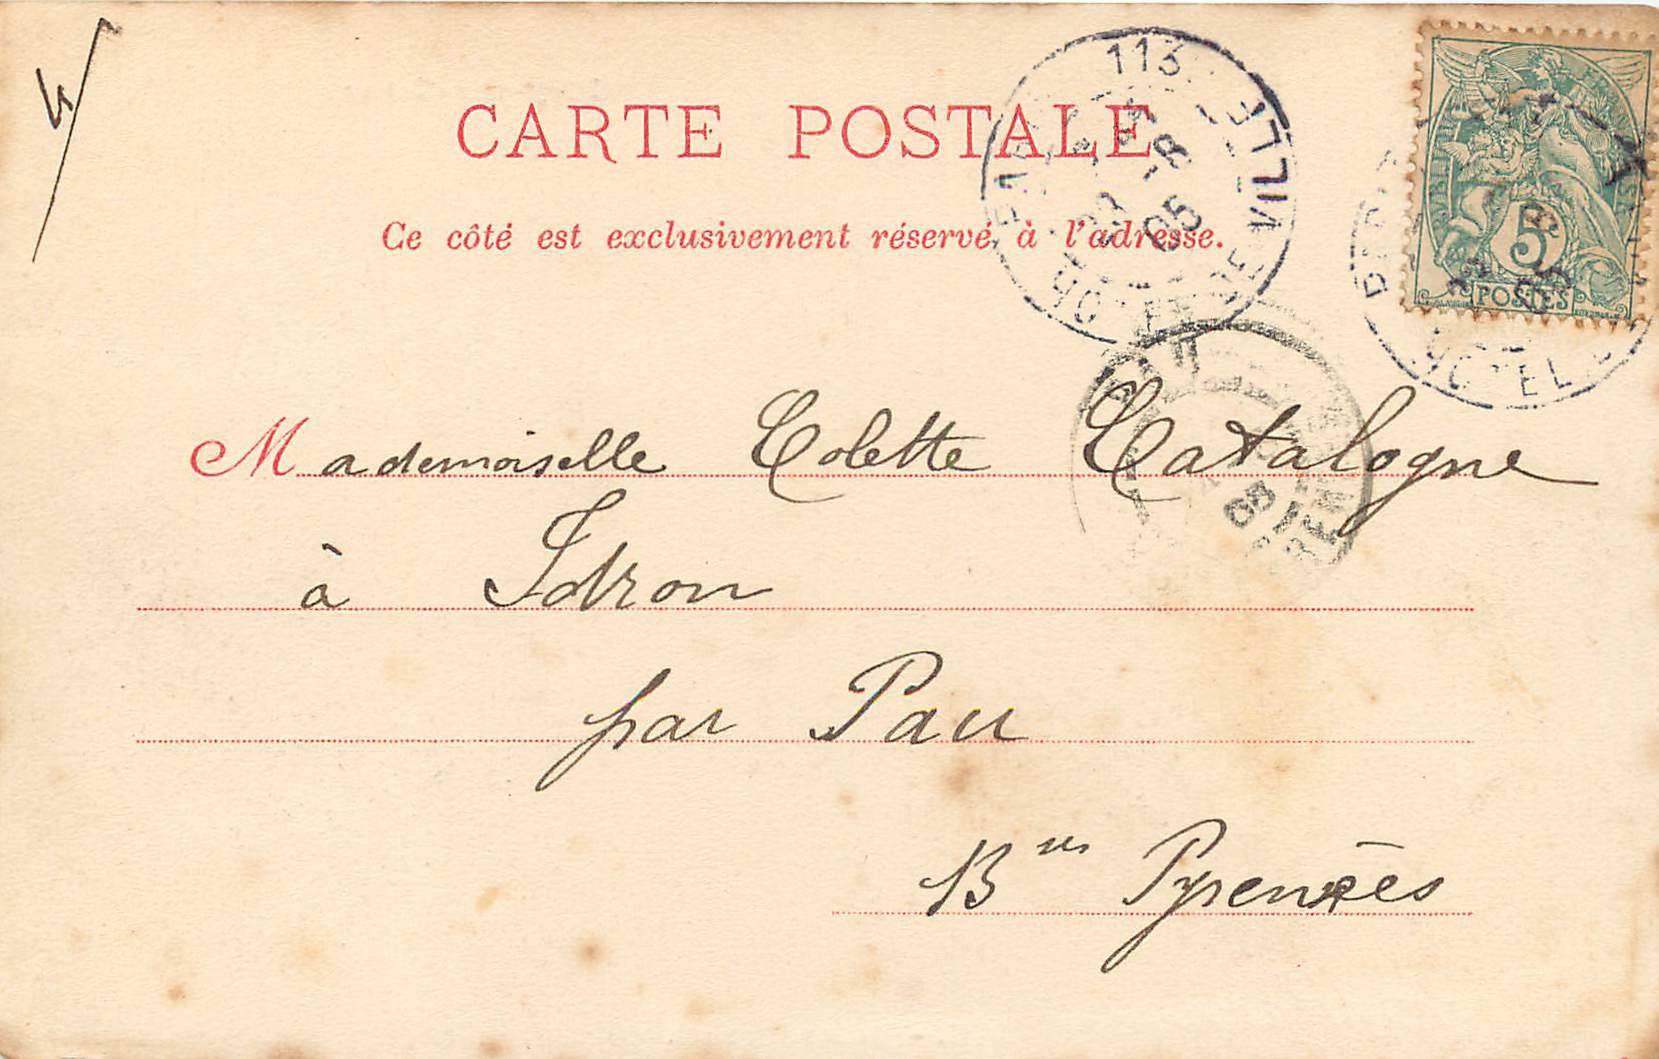 4
CARTE POSTALE
Ce côté est exclusivement réservé à l'adresse.
113
HOTEL DE VILLE
-8
05
5c
POSTES
HOTEL
Mademoiselle Colette Catalogne
à Idron
par Pau
Bses Pyrenées